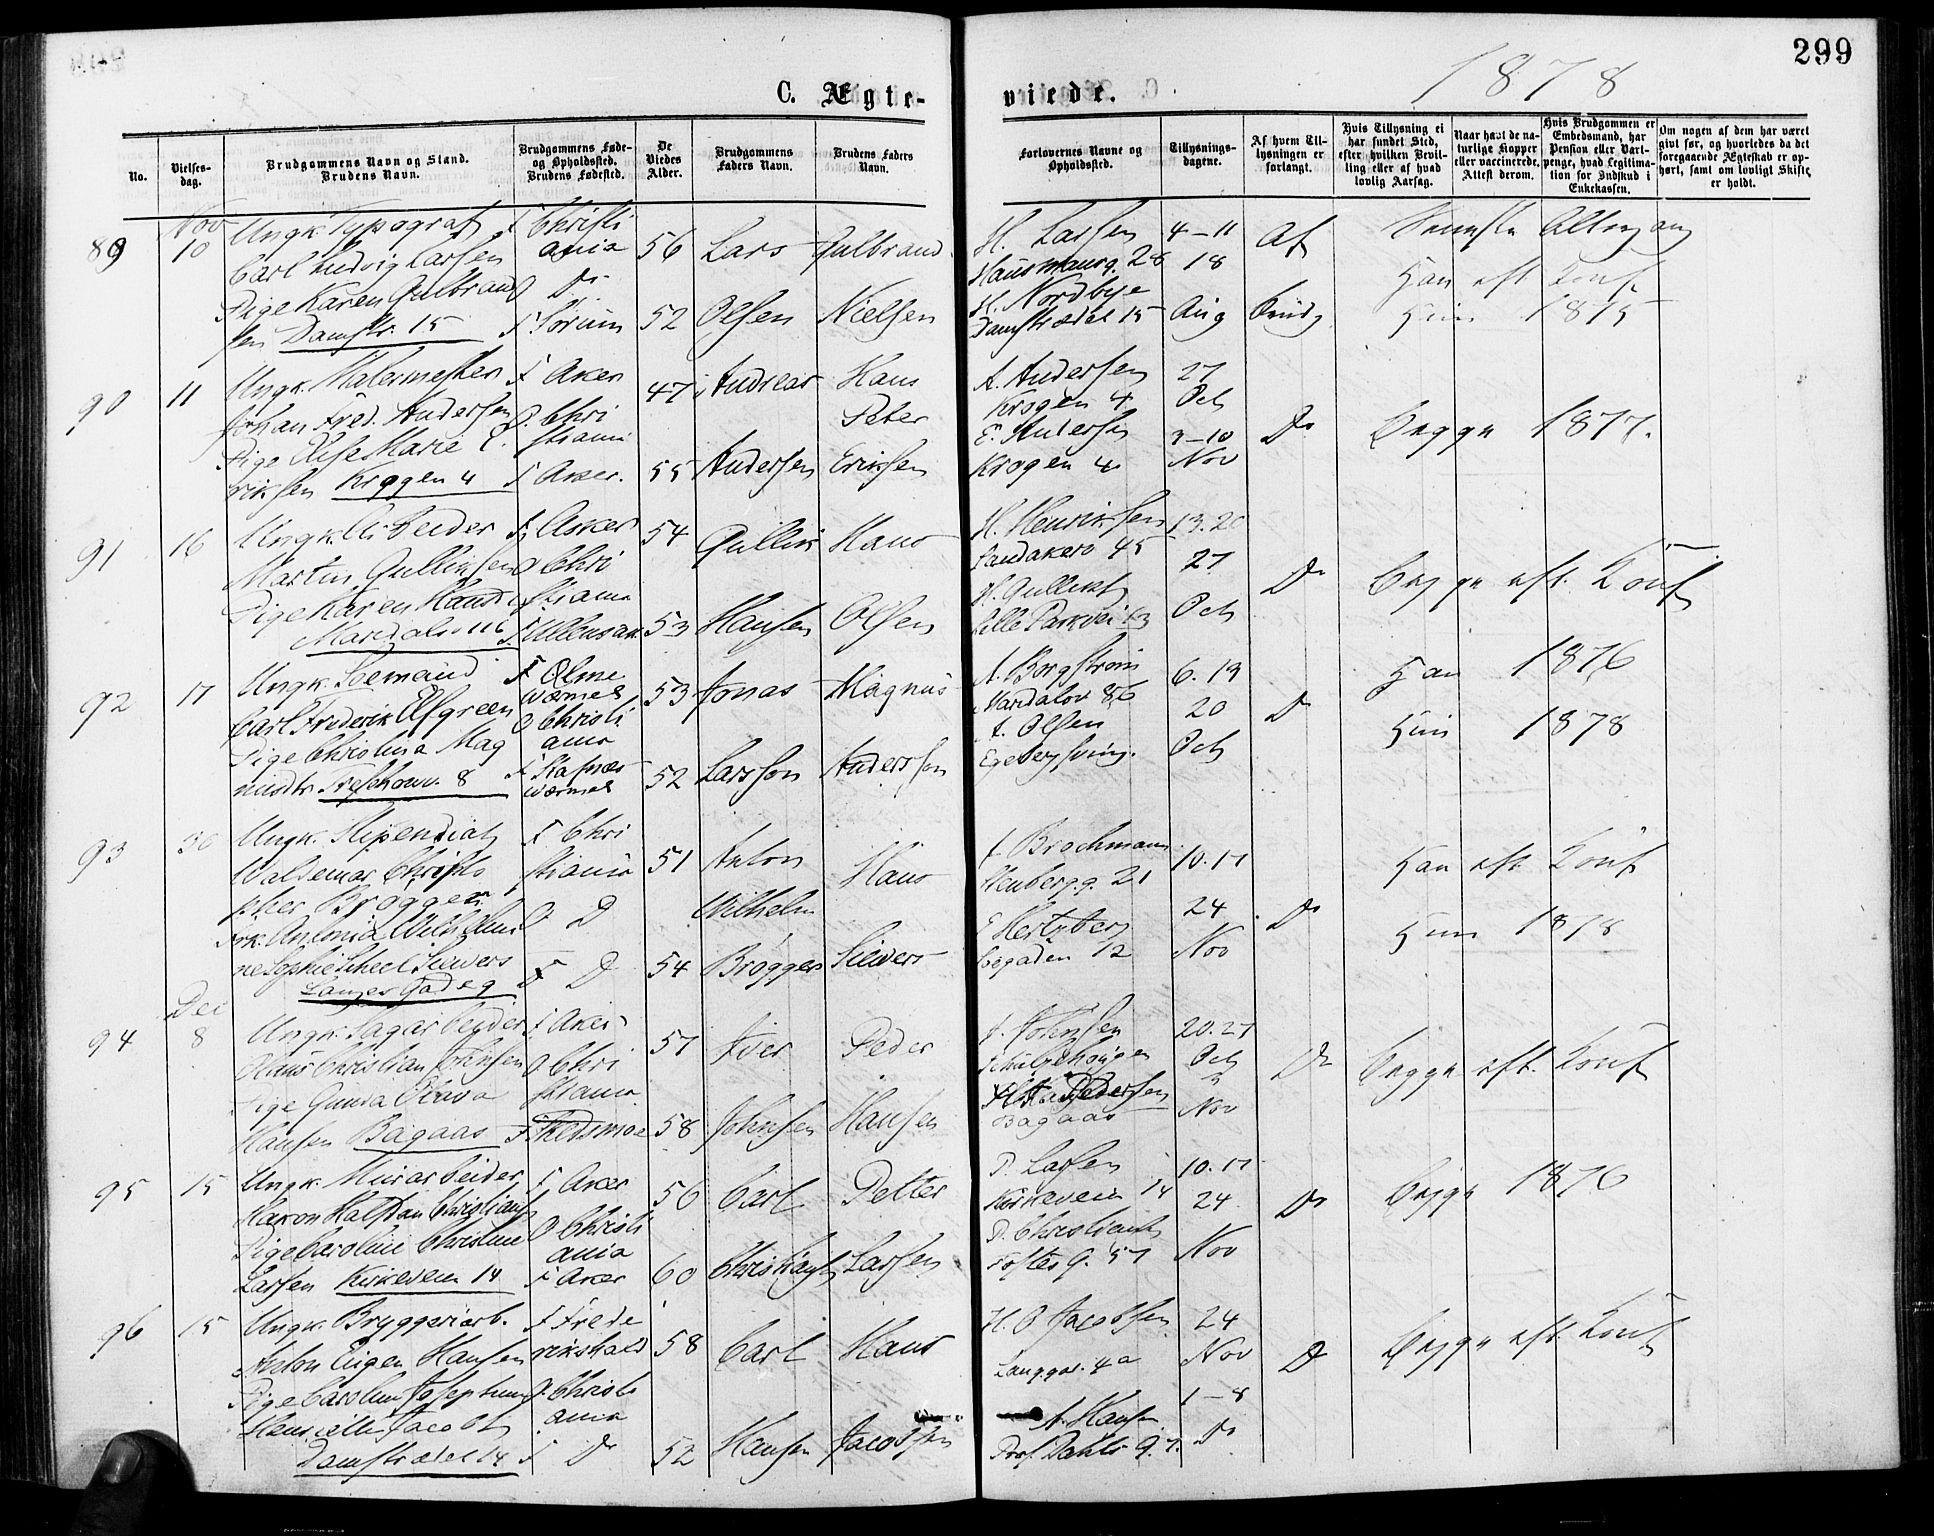 299
1878
C. Ægte-
viede.
No.
Vielses-
dag.
Brudgommens Navn og Stand.
Brudens Navn.
Brudgommens Føde-
og Opholdssted.
Brudens Fødested.
De
Viedes
Alder.
Brudgommens
Faders Navn.
Brudens Faders
Navn.
Forlovernes Navne og
Opholdssted.
Tillysnings-
dagene.
Af hvem Til-
lysningen er
forlangt.
Hvis Tillysning ei
har fundet Sted,
efter hvilken Bevil-
ling eller af hvad
lovlig Aarsag.
Naar havt de na-
turlige Kopper
eller vaccinerede.
Attest derom.
Hvis Brudgommen er
Embedsmand, har
Pension eller Vart-
penge, hvad Legitima-
tion for Indskud i
Enkekassen.
Om nogen af dem har været
givt før, og hvorledes da det
foregaaende Ægteskab er op-
hørt, samt om lovligt Skifte
er holdt.
89
Nov
10
Ungk. Typograf
Carl Ludvig Larsen
Pige Karen Gulbrand
sen Damstr. 15
F Christi
ania
O Do
F Sørum
56
52
Lars
Olsen
Gulbrand
Nielsen
H. Larsen
Hausmansg. 28
H. Nordbye
Damstrædet 15
4-11
18
Aug
Af
Brudg
Han aft Conf
Hun 1875
90
11
Ungk. Malermester
Johan Fred. Andersen
Pige Else Marie E
riksen Krogen 4
F Aker
O. Chri
stiania
F Aker.
47
55
Andreas
Andersen
Hans
Peter
Eriksen
A. Andersen
Krogen 4
E. Andersen
Krogen 4
27
Oct
3-10
Nov
Do
Begge 1877.
91
16
Ungk. Arbeider
Martin Gulliksen
Pige Karen Hansd
Maridalsv 116
F. Asker
O Chri
stiania
F Ullensak.
54
53
Gullik
Hansen
Hans
Olsen
H. Henriksen
Sandakerv 45
H. Gulliks
Lille Parkvei 13
13. 20
27
Oct
Do
Begge aft. Conf
92
17
Ungk. Sømand
Carl Frederik Elfgreen
Pige Christina Mag
nusdtr Treschowv. 8
F Ølme
Wærmel
O Christi
ania
F
Wærmel
53
52
Jonas
Larsson
Magnus
Andersson
A. Borgstrøm
Maridalsv 86
A. Olsen
6. 13
20
Oct
Do
Han 1876
Hun 1878
93
30
Ungk. Stipendiat
Waldemar Christo
pher Brøgger
Frk. Antonia Wilhelmi
ne Sophie Scheel Siewers
Langes Gade 9
F Chri
stiania
O D
F D
51
54
Anton
Wilhelm
Brøgger
Hans
Siewers
J Brochmann
Stenbergg. 21
Hertzberg
Søgaden 12
10. 17
24
Nov
Do
Han aft Conf
Hun 1878
94
Dec
8
Ungk. Sagarbeyder
Hans Christian Johnsen
Pige Gunda Olava
Hansen Bagaas
F. Aker
O Chri
stiania
F. Skedsmoe
57
58
Iver
Johnsen
Peder
Hansen
J. Johnsen
Pedersen
Bagaas
20. 27
Oct
3
Nov
Do
Begge aft. Conf
95
15
Ungk. Murarbeider
Hakon Halfdan Christians
Pige Caroline Christine
Larsen Kirkeveien 14
F. Aker
O Christi
ania
F Aker
56
60
Carl
Christiansen
Petter
Larsen
P. Larsen
Kirkeveien 14
P. Christians
Fosters G. 57
10. 17
24
Nov
Do
Begge 1876
96
15
Ungk. Bryggeriarb.
Anton Eugen Hansen
Pige Caroline Josephine
Henriette Jacobs
Damstrædet 14
F Frede
rikshald
O. Christi
ania
F Do
58
52
Carl
Hansen
Hans
Jacobsen
H. O Jacobsen
Langgd. 4a
A. Hansen
Prof. Dahls G. 7.
24
Nov
1-8
Do
D
Begge aft. Conf